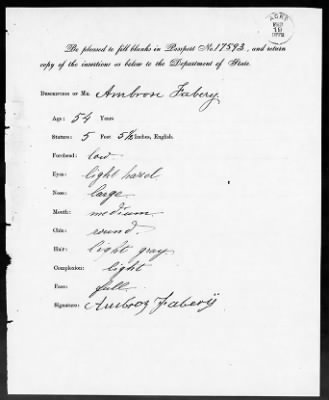 Be pleased to fill blanks in Passport No. 17593, and return
copy of the insertions as below to the Department of State.
Description of Mr. Ambrose Fabery.
Age: 54 Years
Stature: 5 Feet 5½ Inches, English.
Forehead: low
Eyes: light hazel
Nose: large
Mouth: medium
Chin: round.
Hair: light gray
Complexion: light
Face: full
Signature: Ambroz Faberÿ